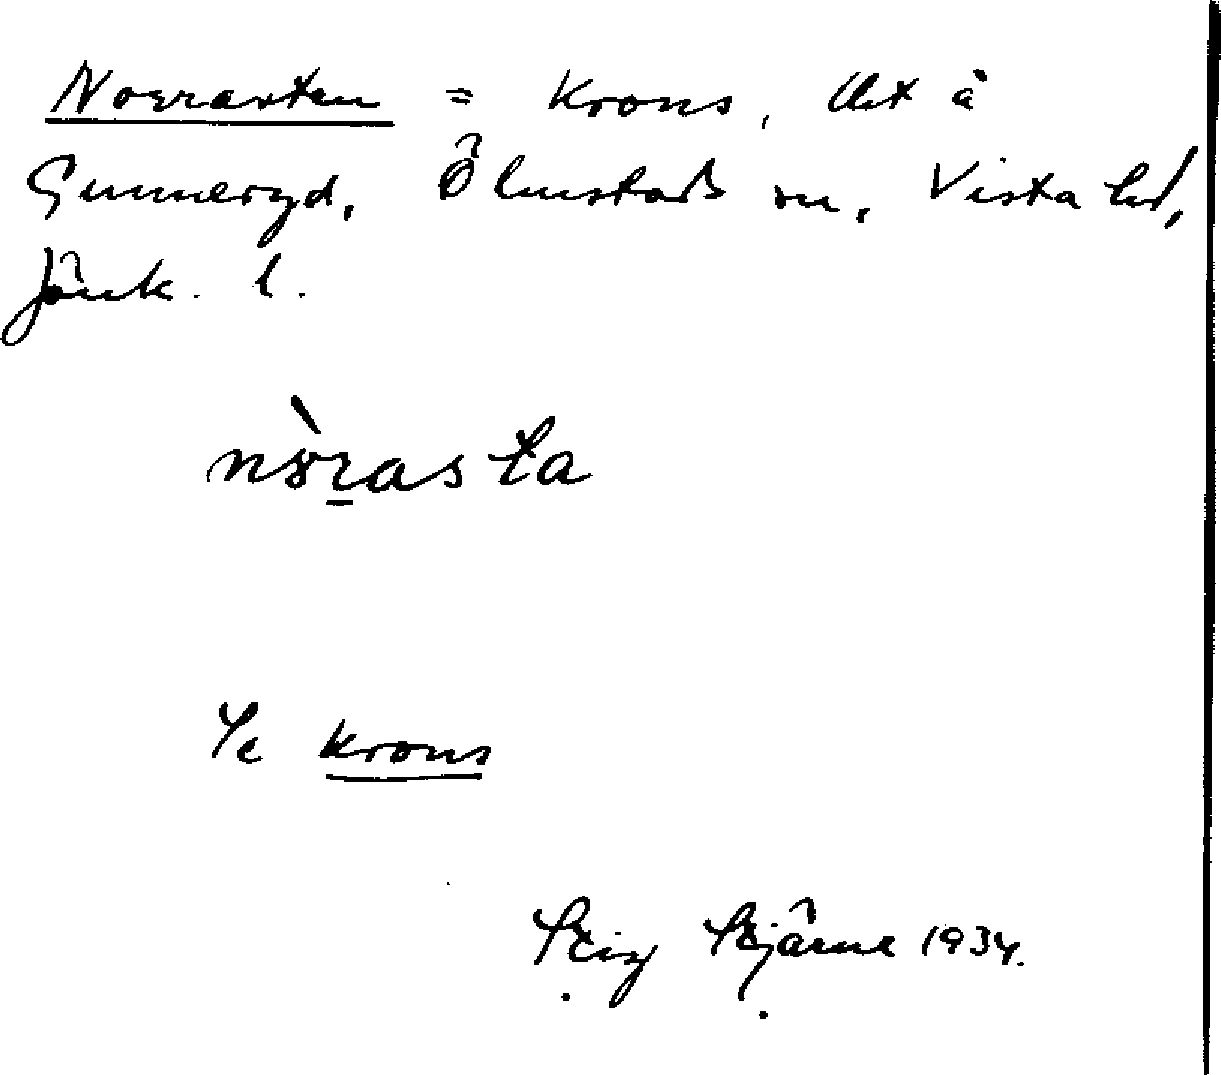 Norrasten = Krons, Utå
Gunneryd, Ölmstads sn, Vista hd,
Jönk. l.
nòrasta
Se Krons
Stig Stjärne 1934.